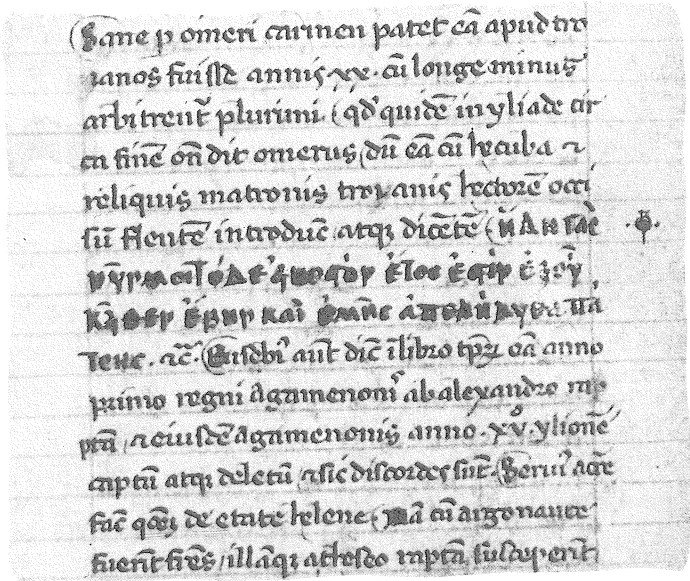 Sane ꝑ omeri carmen patet eā apud tro
ianos fuisse annis xx. cū longe minus
arbitrent᷑ plurimi. qd̕ quidē in yliade cir
ca finē on̄dit omerus, dū eā cū hecuba ⁊
reliquis matronis troyanis hectorē occi
sū flentē introduc̄ atqꝫ dicētē ἤΔη γὰρ
νῦν μοι ΤόΔε ἔτος ἐςτὶν ἐξ οὗ
ἔβην καὶ ἐμῆς πά
⁊c̄. Eusebi᷒ aut̄ dic̄ ī libro tp̄ꝝ eā anno
primo regni Agamenonis ab alexandro rap
ptā, ⁊ eiusdē Agamenonis anno .xv. ylionē
captū atqꝫ deletū, ⁊ sic discordes sūt. Serui᷒
fac̄ de etate helene, nā cū argonaute
fuerīt fr̄es, illāqꝫ a theseo raptā susceperīt